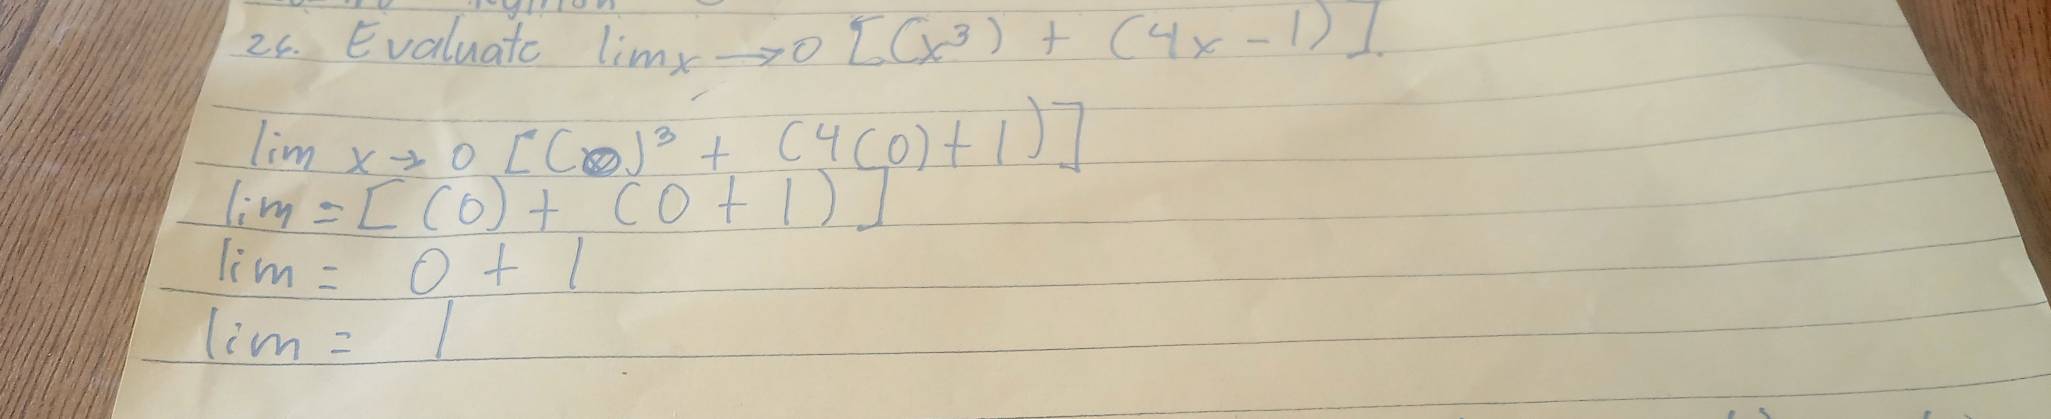 26. Evaluate lim x → 0 [(x³) + (4x - 1)].
lim x → 0 [( )³ + (4(0)+1)]
lim = [(0) + (0 + 1)]
lim = 0 + 1
lim = 1